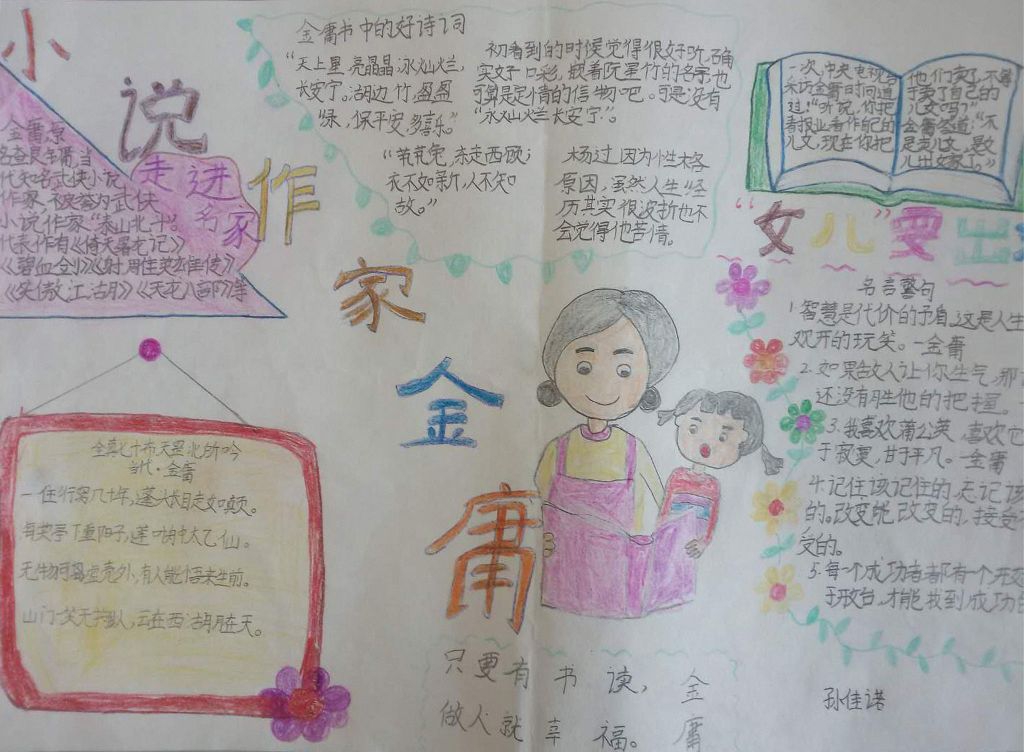 小说作家金庸
走进
名家
金庸,原
名查良镛,当
代知名武侠小说
作家,被誉为武侠
小说作家“泰山北斗”。
代表作有《倚天屠龙记》
《碧血剑》《射雕英雄传》
《笑傲江湖》《天龙八部》等
金庸书中的好诗词
“天上星,亮晶晶,永灿烂,
长安宁。湖边竹,盈盈
绿,保平安,多喜乐。”
初看到的时候觉得很好听,确
实好口彩,被看阮星竹的名字也
可算是定情的信物吧。可是没有
“永灿烂长安宁”。
“茕茕兔,东走西顾;
衣不如新,人不如
故。”
杨过因为性格
原因,虽然人生经
历其实很波折也不
会觉得他苦情。
一次,中央电视台
采访金庸时问道
过:“听说,你把
看报业看作自己的
儿女,现在你把
他们卖了,不等
于卖了自己的
儿女吗?”
金庸答道:“不
是卖儿女,是女
儿出嫁了。”
“女儿”要出
名言警句
1.智慧是代价的予自,这是人生
观开的玩笑。—金庸
2.如果敌人让你生气,那
还没有胜他的把握。
3.我喜欢蒲公英,喜欢它
于寂寞,甘于平凡。—金庸
4.记住该记住的,忘记该
的。改变能改变的,接受
变的。
5.每一个成功者都有一个开
于放台,才能找到成功
当代·金庸
一住行窝几十年,蓬头长日走如颠。
海棠亭下重阳子,莲叶舟中太乙仙。
无物可离虚壳外,有人能悟未生前。
山门一笑无拘碍,云在西湖月在天。
只要有书读,
做人就幸福。
金庸
孙佳诺